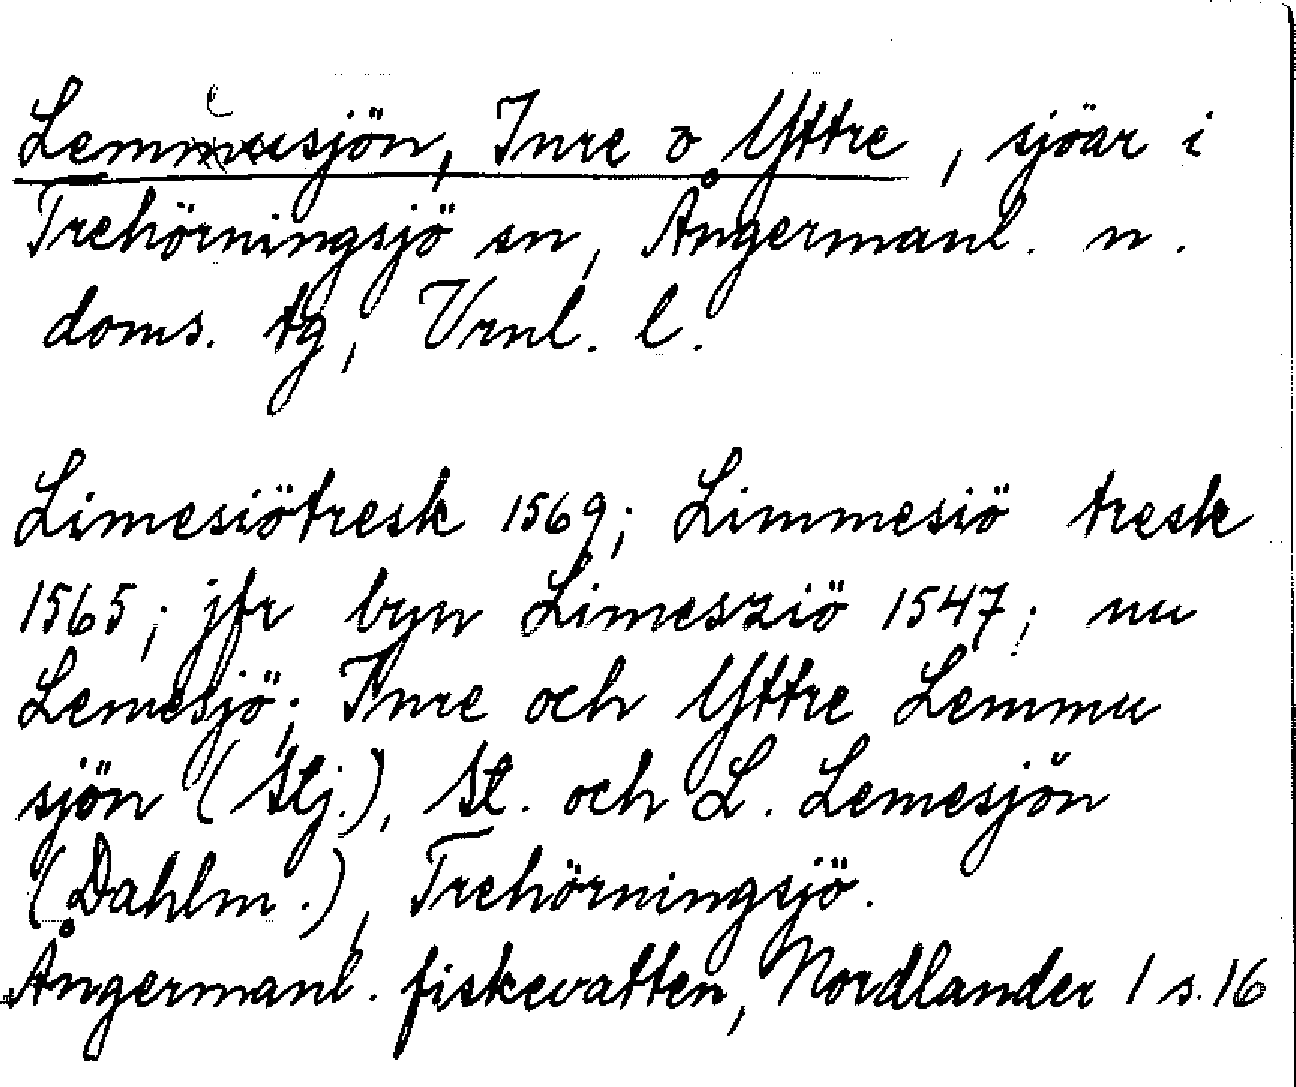 Lemmusjön, Inre o Yttre, sjöar i
Trehörningsjö sn, Ångermanl. n.
doms. tg, Vrnl. l.
Limesiötresk 1569; Limmesiö tresk
1565; jfr byn Limesziö 1547; nu
Lemesjö; Inre och Yttre Lemmu
sjön (Stj.), St. och L. Lemesjön
(Dahlm.), Trehörningsjö.
Ångermanl. fiskevatten, Nordlander 1 s. 16